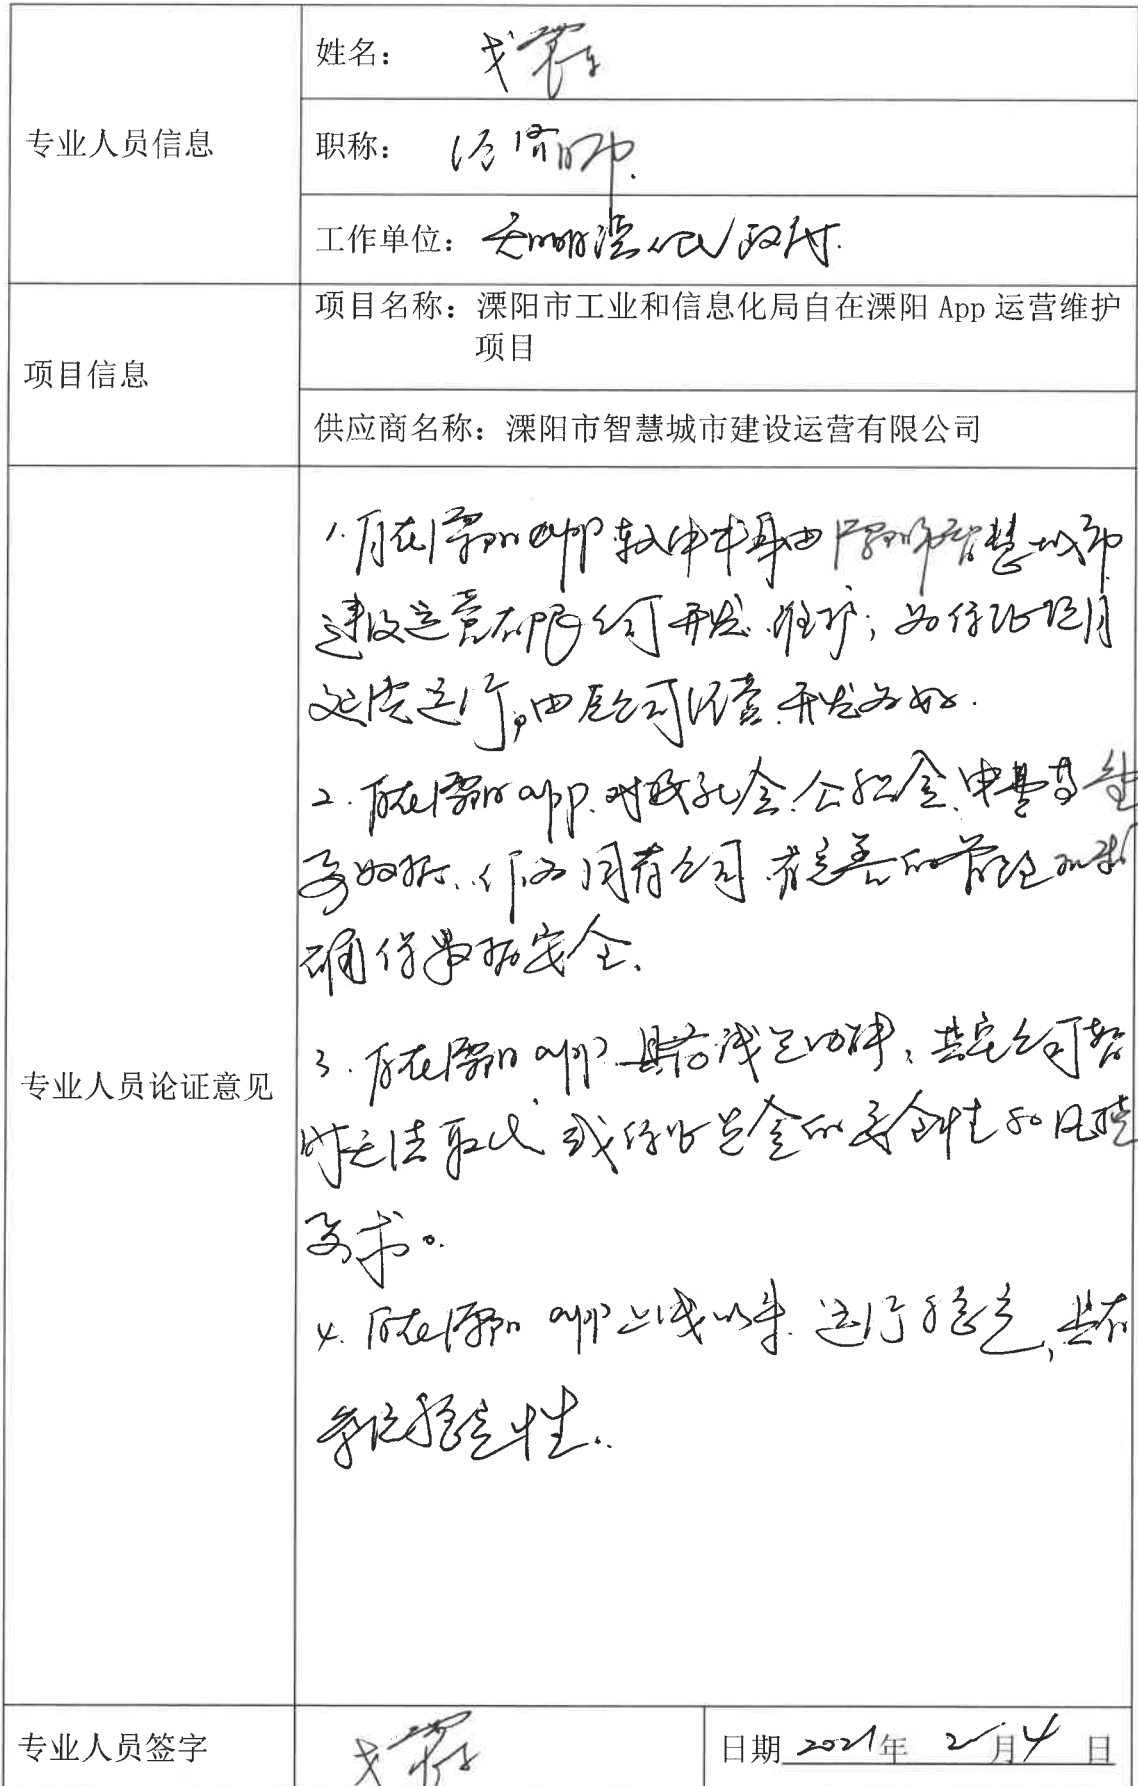 专业人员信息
姓名：戈
职称：经济师
工作单位：天目湖镇人民政府
项目信息
项目名称：溧阳市工业和信息化局自在溧阳 App 运营维护
项目
供应商名称：溧阳市智慧城市建设运营有限公司
专业人员论证意见
1.自在溧阳app软件本身由溧阳市智慧城市
建设运营有限公司开发、维护；为保证
运行，由原公司 开发为好.
2.自在溧阳app.对 社会.公积金.
数据.作为国有公司.有完善的管理机制
确保数据安全.
3.自在溧阳app.具有 功能，其它公司暂
时无法取代 或保证资金的安全性和风控
要求。
4.自在溧阳app上线以来.运行稳定，具有
系统稳定性.
专业人员签字
戈
日期 2021年 2月4日